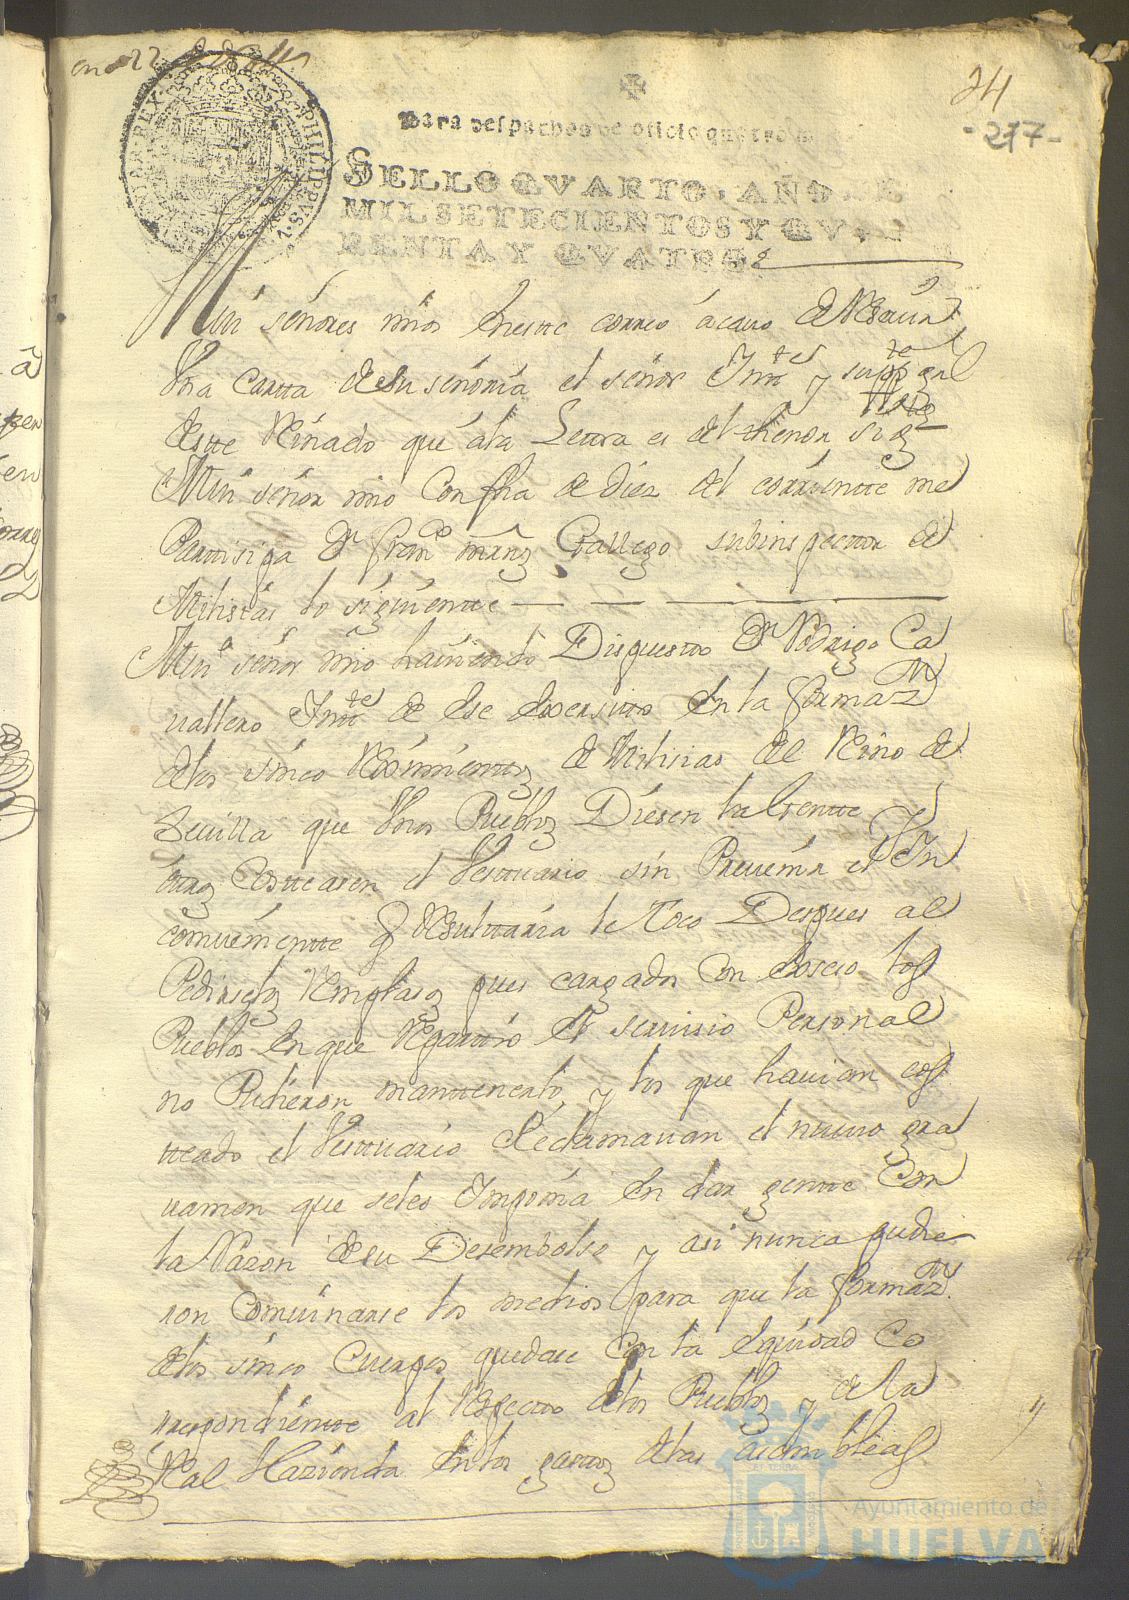 en 22
24
-277-
Para despachos de oficio quatro m
SELLO QVARTO, AÑO DE
MIL SETECIENTOS Y QVA
RENTA Y QVATRO.
Mui señores mios En este correo acavo de Resiuir
Vna Carta de su señoria el señor Intte y
deste Reinado que a la Letra es del thenor sigte
Mui señor mio Con fha de diez del corriente me
Partisipa Dn Franco Marnz Gallego subinspector de
Milisias lo siguiente
Mui señor mio hauiendo Dispuesto Dn Rodrigo Ca
uallero Intte de ese exersito En la formazn
delos sinco Reximientos de Milisias del Reino de
Seuilla que Vnos Pueblos Diesen la Gente y
otros Costeasen el Vestuario sin Preuenir el In
comueniente q Resultaria le Toco Despues al
Pedirselos Remplasos pues cargados Con Exseso los
Pueblos En que Repartio el seruisio Personal
no Pudieron mantenerlo, y los que hauian cos
teado el Vestuario Reclamauan el nuevo gra
uamen que seles Imponia En dar gente Con
la Razon de su Desembolso y asi nunca pudie
ron Comuinarse los medios para que la formazn
delos sinco Cuerpos quedase Con la Equidad Co
rrespondiente al Respecto delos Pueblos y de la
Real Hazienda En los gastos delas asambleas
Ayuntamiento de
HUELVA